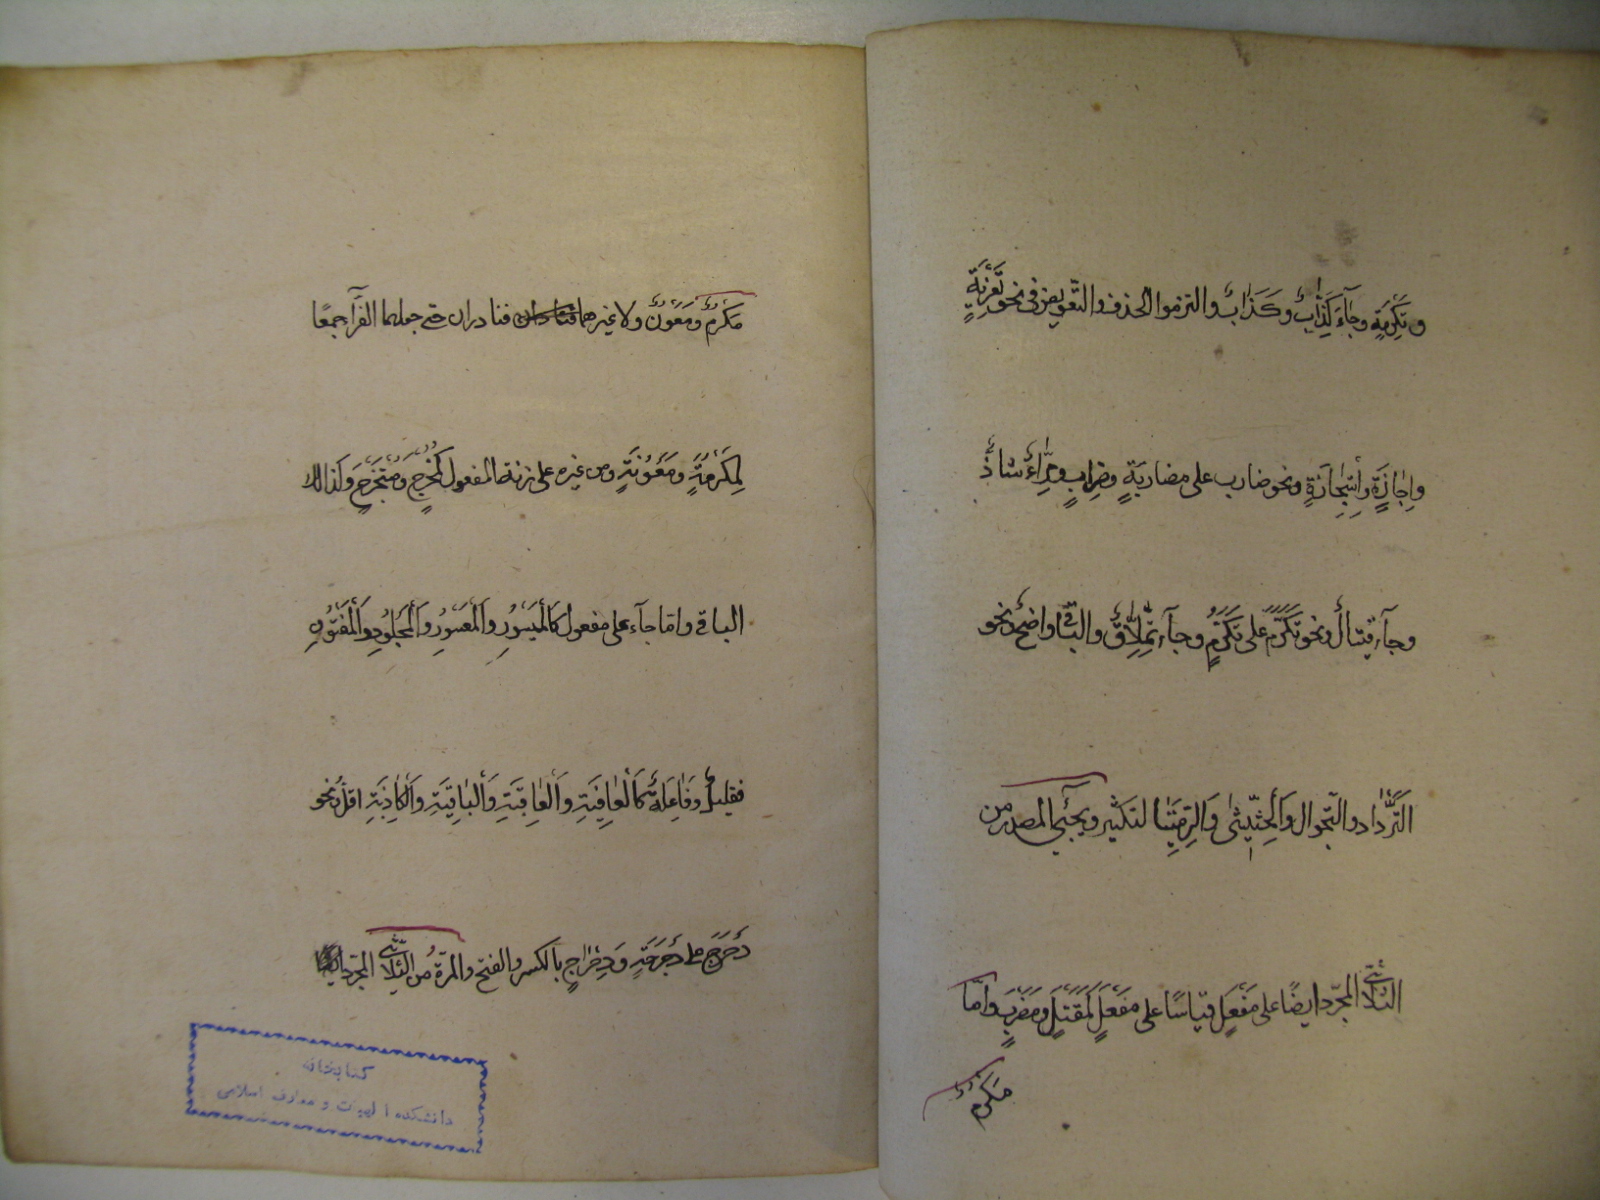 وتَكْرِمَةٍ وجآءَ كِذَّابٌ وكِذَابٌ والتزموا الحذف والتّعويض فى نحو تَعْزِيَةٍ
واِجازَةٍ واِسْتِجازَةٍ ونحو ضارب على مضاربَةٍ وضِرابٍ ومِرَّاءٌ شاذٌّ
وجآء قيتالٌ ونحو تَكَرَّمَ على تَكَرُّمٍ وجآء تِمِلَّاقٌ والباقى واضحٌ ونحو
التَّرْدادِ والتَّجوالِ والحِثِّيثى والرِمِّيّا لتكثير ويجيئى المصدر من
الثّلاثىّ المجرّد ايضًا على مَفْعَلٍ قياسًا على مَفْعَلٍ كَمَقْتَلٍ ومَضْرَبٍ وامّا
مَكْرُمٌ
مَكْرُمٌ ومَعُونٌ ولا غيرهما فنادران حتى جعلهما الفرّآء جمعًا
لِمَكْرُمَةٍ ومَعُونَةٍ ومن غيره على زنة المفعول كمُخْرَجٍ ومُسْتَخْرَجٍ وكذالك
الباقى واما جآء على مفعول كالمَيْسُورِ والمَعْسُورِ والمَجْلُودِ والمَفْتُونِ
فقليلٌ وفاعِلَةٌ كالعافِيَةِ والعاقِبَةِ والباقِيَةِ والكاذِبَةِ اقلّ ونحو
دَحْرَجَ على دَحْرَجَةٍ ودِحْراجٍ بالكسر والفتح والمرّة من الثّلاثىّ المجرّد
كتابخانه
دانشكده الهيات و معارف اسلامى